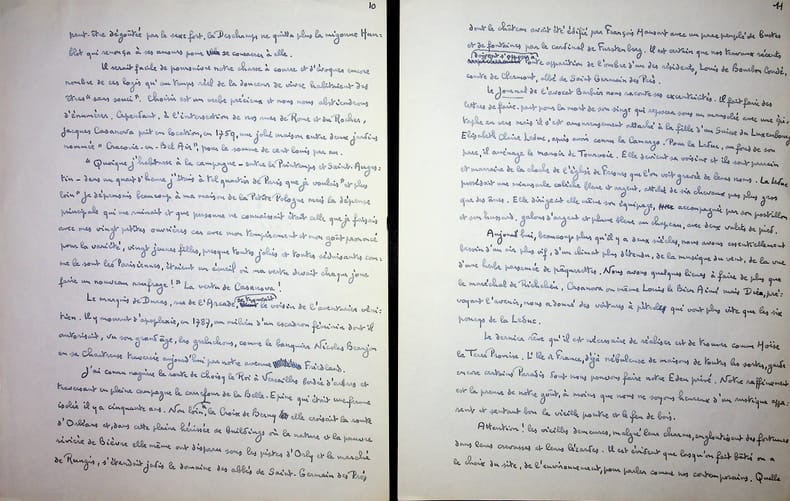 10
peut-être dégoûté par le sexe fort, la Deschamps ne quitta plus la mignonne Hum-
blot qui renonça à ses amours pour se consacrer à elle.
Il serait facile de poursuivre notre chasse à courre et d'évoquer encore
nombre de ces logis qu'au temps réel de la douceur de vivre habitaient des
êtres "sans souci". Choisir est un verbe précieux et nous nous abstiendrons
d'énumérer. Cependant, à l'intersection de nos rues de Rome et du Rocher,
Jacques Casanova prit en location, en 1759, une jolie maison entre deux jardins
nommée "Cracovie-en-Bel Air" pour la somme de cent louis par an.
"Quoique j'habitasse à la campagne - entre le Printemps et Saint-Augus-
tin - dans un quart d'heure j'étais à tel quartier de Paris que je voulais" et plus
loin "je dépensais beaucoup à ma maison de la Petite Pologne mais la dépense
principale qui me ruinait et que personne ne connaissait était celle que je faisais
avec mes vingt petites ouvrières car avec mon tempérament et mon goût prononcé
pour la variété, vingt jeunes filles, presque toutes jolies et toutes séduisantes com-
me le sont les Parisiennes, étaient un écueil où ma vertu devait chaque jour
faire un nouveau naufrage!" La vertu de Casanova!
Le marquis de Dunas, rue de l'Arcade, se trouvait le voisin de l'aventurier véni-
tien. Il y mourut d'apoplexie, en 1787, au milieu d'un escadron féminin dont il
autorisait, vu son grand âge, les greluchons, comme le banquier Nicolas Beaujon
en sa Chartreuse traversée aujourd'hui par notre avenue Friedland.
J'ai connu naguère la route de Choisy le Roi à Versailles bordée d'arbres et
traversant en pleine campagne le carrefour de la Belle-Epine qui était une ferme
isolée il y a cinquante ans. Non loin, la Croix de Berny elle croisait la route
d'Orléans et dans cette plaine hérissée de buildings où la nature et la pauvre
rivière de Bièvre elle même ont disparu sous les pistes d'Orly et le marché
de Rungis, s'étendait jadis le domaine des abbés de Saint-Germain des Prés
11
dont le château avait été édifié par François Mansart avec un parc peuplé de bustes
et de fontaines par le cardinal de Furstenberg. Il est certain que nos travaux récents
doivent s'opposer à cette apparition de l'ombre d'un des résidents, Louis de Bourbon Condé,
comte de Clermont, abbé de Saint Germain des Prés.
Le Journal de l'avocat Barbier nous raconte ses excentricités. Il fait faire des
lettres de faire-part pour la mort de son singe qui reposera sous un mausolée avec une épi-
taphe en vers mais il s'est amoureusement attaché à la fille d'un Suisse du Luxembourg
Elisabeth Claire Leduc, après avoir connu la Camargo. Pour la Leduc, au fond de son
parc, il aménage le manoir de Tourvoie. Elle devient sa voisine et ils sont parrain
et marraine de la cloche de l'église de Fresnes que l'on voit gravée de leurs noms. La Leduc
possédait une mesurable calèche bleue et argent, attelée de six chevaux pas plus gros
que des ânes. Elle dirigeait elle même son équipage, accompagnée par son postillon
et son hussard, galons d'argent et plume bleue au chapeau, avec deux valets de pied.
Aujourd'hui, beaucoup plus qu'il y a deux siècles, nous avons essentiellement
besoin d'un air plus vif, d'un climat plus détendu, de la musique du vent, de la vue
d'une herbe parsemée de pâquerettes. Nous avons quelques lieues à faire de plus que
le maréchal de Richelieu, Casanova ou même Louis le Bien Aimé mais Dieu, pré-
voyant l'avenir, nous a donné des voitures à pétrole qui vont plus vite que les six
poneys de la Leduc.
Le dernier rêve qu'il est nécessaire de réaliser est de trouver comme Moïse
la Terre Promise. L'Ile de France, déjà nébuleuse de maisons de toutes les sortes, garde
encore certains Paradis dont nous pouvons faire notre Eden privé. Notre raffinement
est la preuve de notre goût, à moins que nous ne soyons heureux d'un rustique appa-
rent et sentant bon la vieille poutre et le feu de bois.
Attention! les vieilles demeures, malgré leur charme, engloutissent des fortunes
dans leurs crevasses et leurs lézardes. Il est évident que lorsqu'on fait bâtir on a
le choix du site, de l'environnement, pour parler comme nos contemporains. Quelle